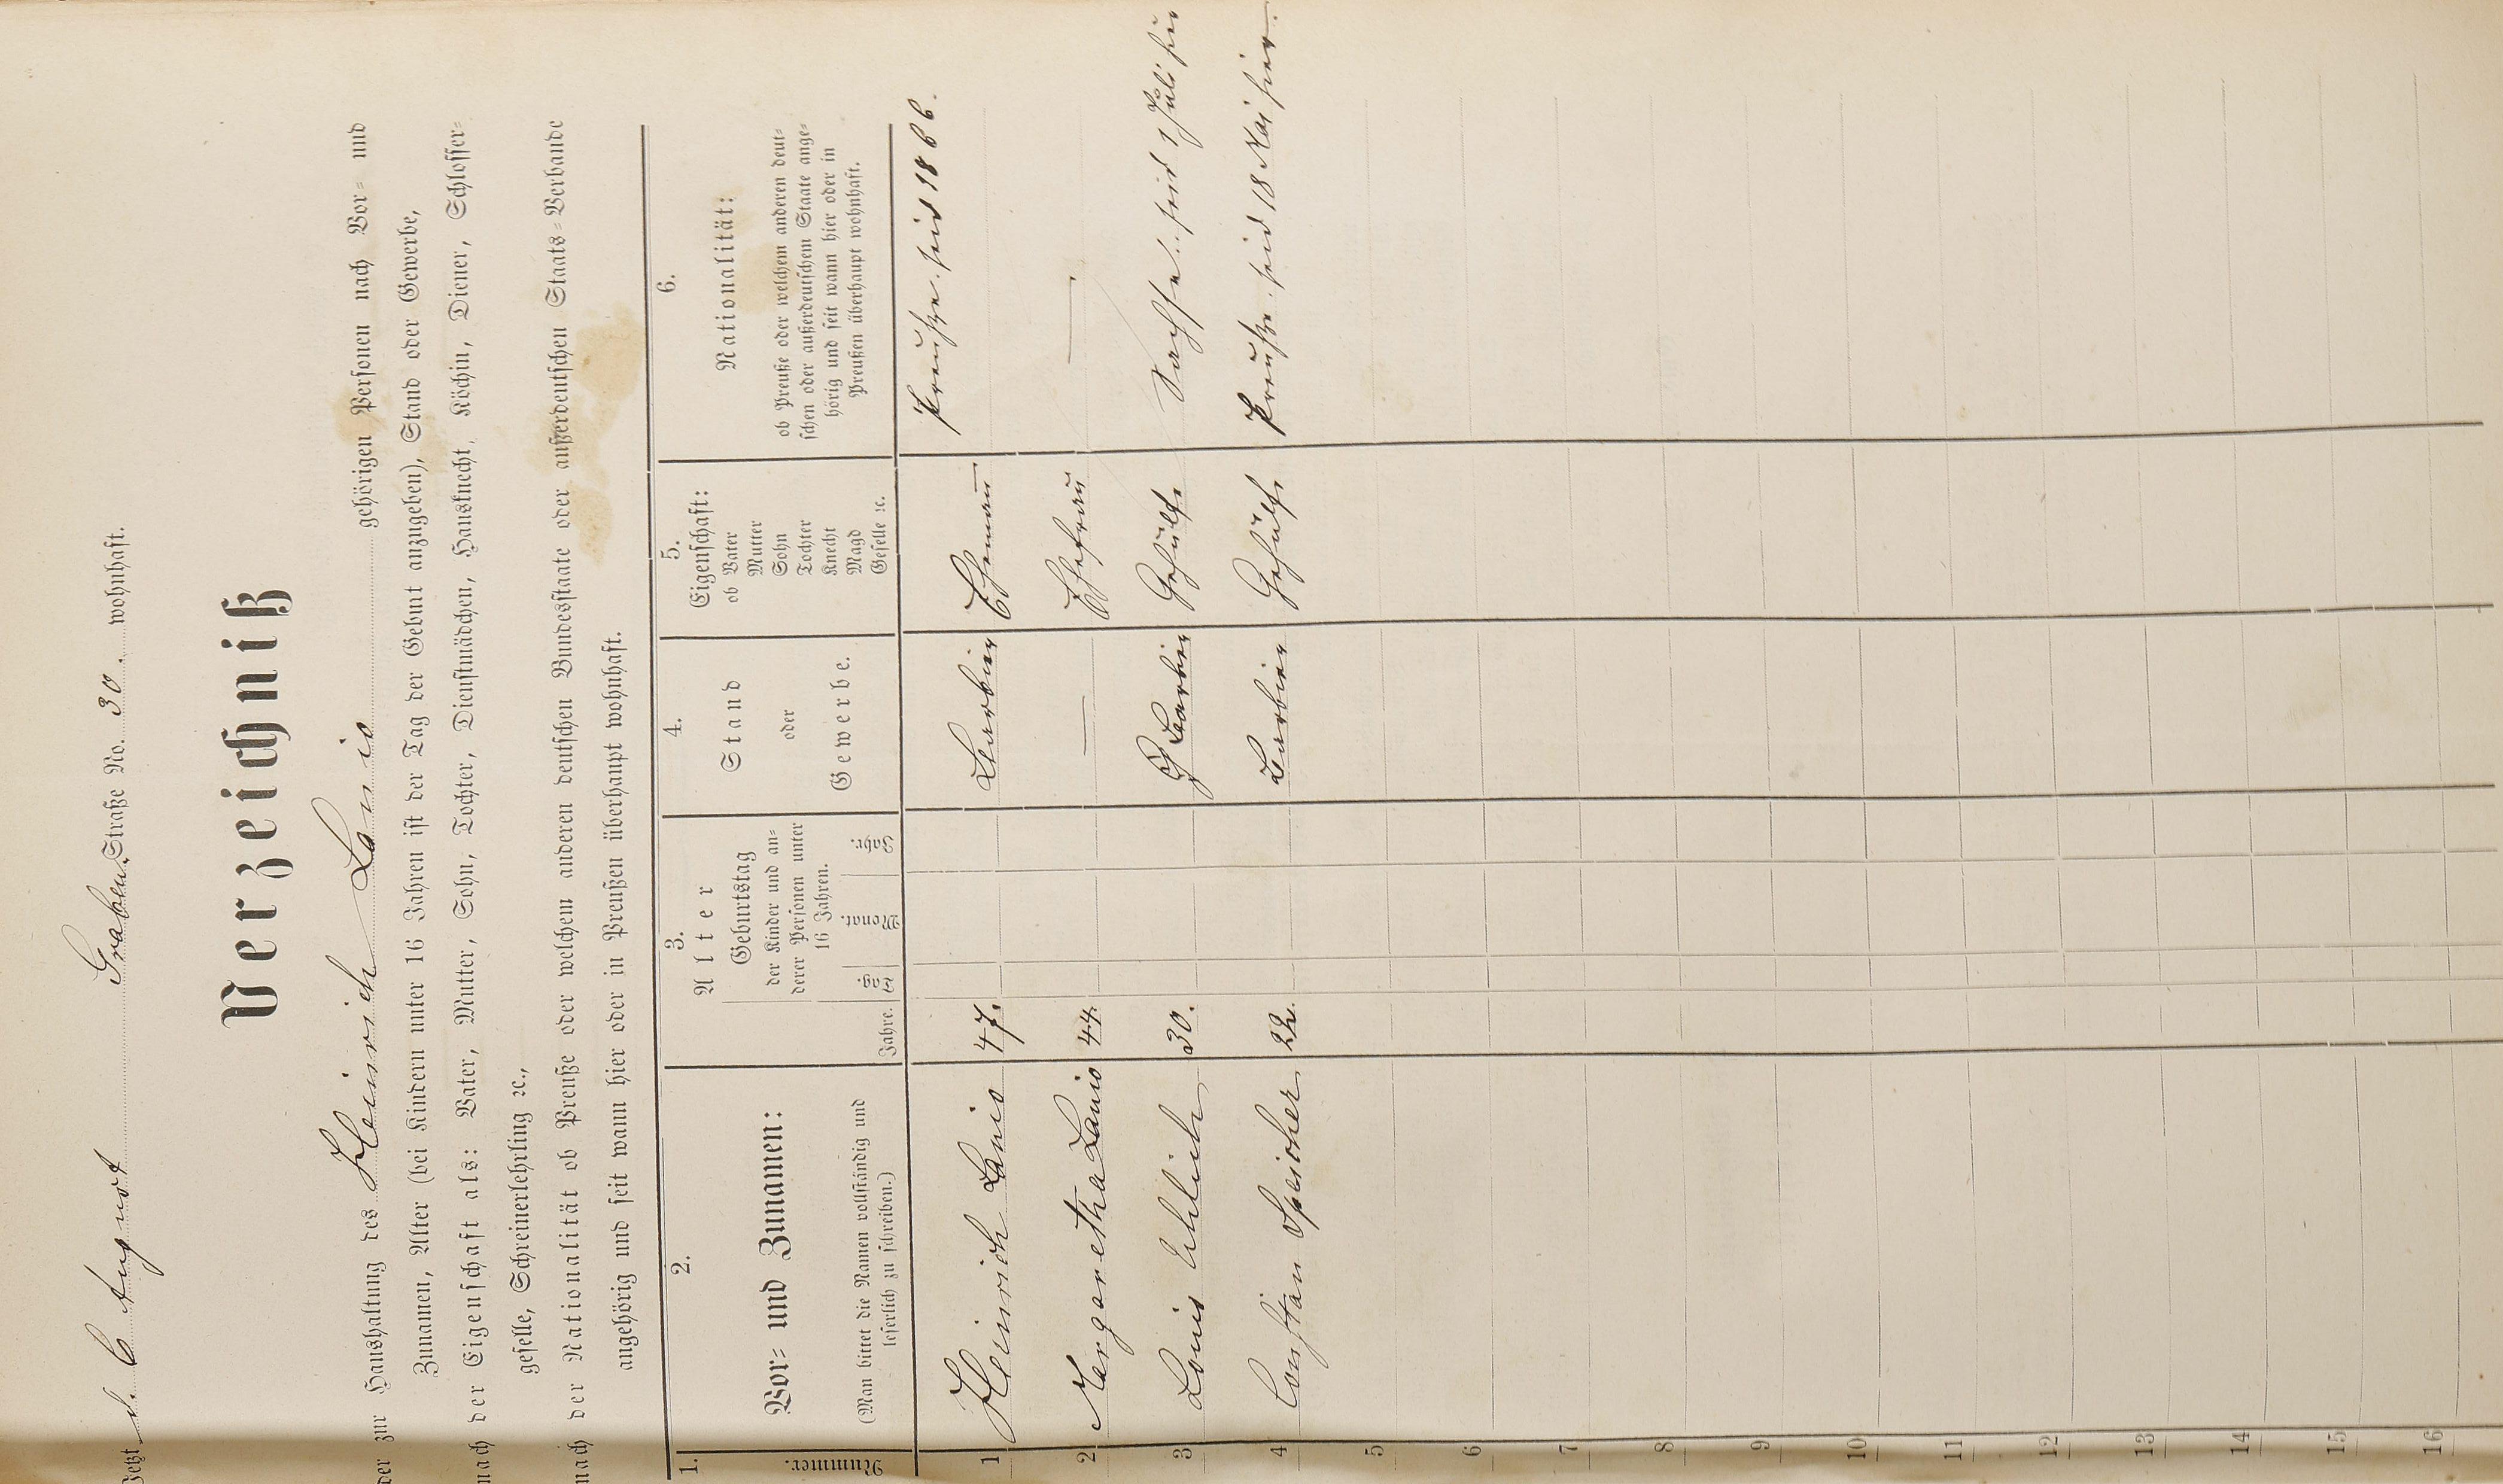 Jetzt d. 6 August Graben Straße No. 30. wohnhaft.
Verzeichniß
der zur Haushaltung des Heinrich Lanio gehörigen Personen nach Vor- und
Zunamen, Alter (bei Kindern unter 16 Jahren ist der Tag der Geburt anzugeben), Stand oder Gewerbe,
nach der Eigenschaft als: Vater, Mutter, Sohn, Tochter, Dienstmädchen, Hausknecht, Köchin, Diener, Schlosser-
geselle, Schreinerlehrling ꝛc.,
nach der Nationalität ob Preuße oder welchem anderen deutschen Bundesstaate oder außerdeutschen Staats-Verbande
angehörig und seit wann hier oder in Preußen überhaupt wohnhaft.
1.
Nummer.
2.
Vor- und Zunamen:
(Man bittet die Namen vollständig und
leserlich zu schreiben.)
3.
Alter
Jahre.
Geburtstag
der Kinder und an-
derer Personen unter
16 Jahren.
Tag. Monat. Jahr.
4.
Stand
oder
Gewerbe.
5.
Eigenschaft:
ob Vater
Mutter
Sohn
Tochter
Knecht
Magd
Geselle ꝛc.
6.
Nationalität:
ob Preuße oder welchem anderen deut-
schen oder außerdeutschem Staate ange-
hörig und seit wann hier oder in
Preußen überhaupt wohnhaft.
1 Heinrich Lanio 47. Barbier Ehemann Preuße. seid 1866.
2 Margaretha Lanio 44. — Ehefrau —
3 Louis 30. Barbier Gehülfe Sachse. seid 1 Juli hier
4 Constan Speicher 22. Barbier Gehülfe Preuße. seid 18 Mai hier.
5
6
7
8
9
10
11
12
13
14
15
16